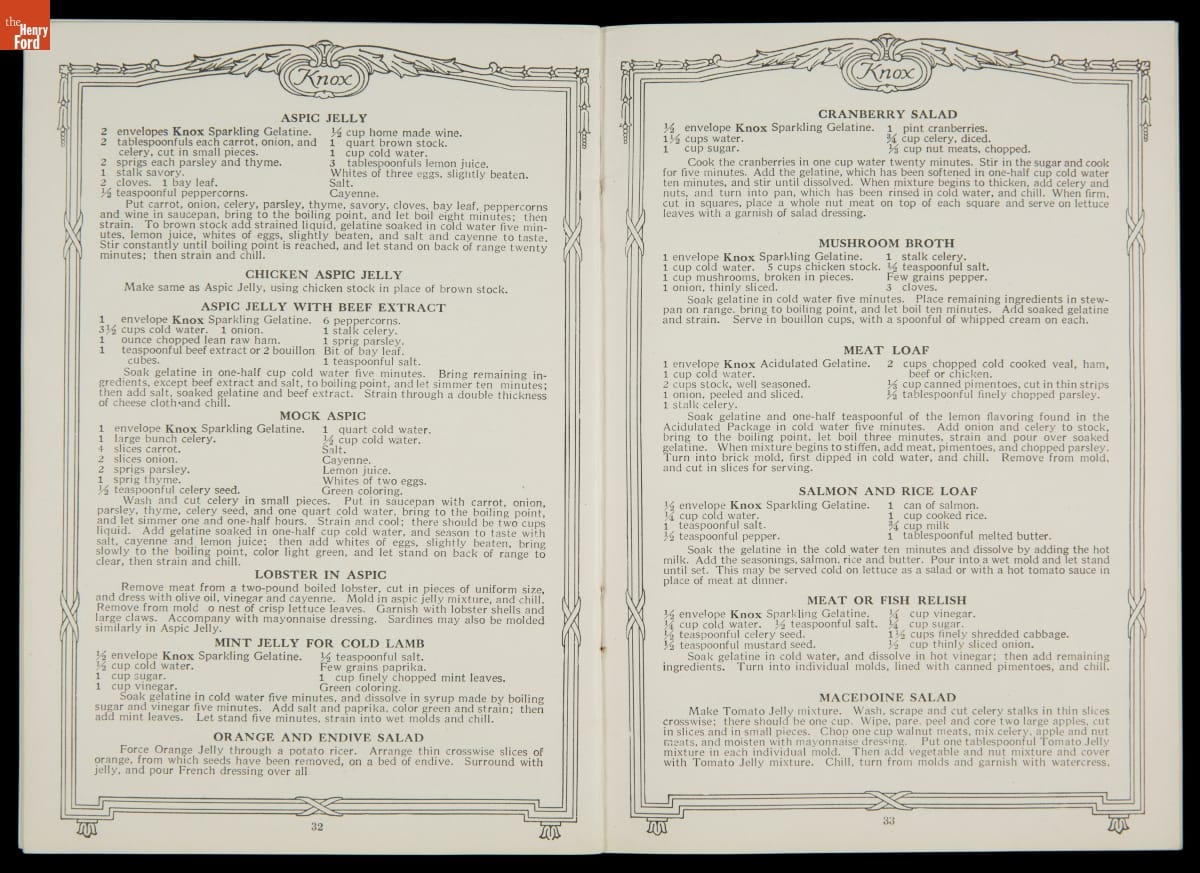 the
Henry
Ford
Knox
ASPIC JELLY
2 envelopes Knox Sparkling Gelatine.
2 tablespoonfuls each carrot, onion, and
celery, cut in small pieces.
2 sprigs each parsley and thyme.
1 stalk savory.
2 cloves. 1 bay leaf.
½ teaspoonful peppercorns.
½ cup home made wine.
1 quart brown stock.
1 cup cold water.
3 tablespoonfuls lemon juice.
Whites of three eggs, slightly beaten.
Salt.
Cayenne.
Put carrot, onion, celery, parsley, thyme, savory, cloves, bay leaf, peppercorns
and wine in saucepan, bring to the boiling point, and let boil eight minutes; then
strain. To brown stock add strained liquid, gelatine soaked in cold water five min-
utes, lemon juice, whites of eggs, slightly beaten, and salt and cayenne to taste.
Stir constantly until boiling point is reached, and let stand on back of range twenty
minutes; then strain and chill.
CHICKEN ASPIC JELLY
Make same as Aspic Jelly, using chicken stock in place of brown stock.
ASPIC JELLY WITH BEEF EXTRACT
1 envelope Knox Sparkling Gelatine.
3½ cups cold water. 1 onion.
1 ounce chopped lean raw ham.
1 teaspoonful beef extract or 2 bouillon
cubes.
6 peppercorns.
1 stalk celery.
1 sprig parsley.
Bit of bay leaf.
1 teaspoonful salt.
Soak gelatine in one-half cup cold water five minutes. Bring remaining in-
gredients, except beef extract and salt, to boiling point, and let simmer ten minutes;
then add salt, soaked gelatine and beef extract. Strain through a double thickness
of cheese cloth and chill.
MOCK ASPIC
1 envelope Knox Sparkling Gelatine.
1 large bunch celery.
4 slices carrot.
2 slices onion.
2 sprigs parsley.
1 sprig thyme.
½ teaspoonful celery seed.
1 quart cold water.
½ cup cold water.
Salt.
Cayenne.
Lemon juice.
Whites of two eggs.
Green coloring.
Wash and cut celery in small pieces. Put in saucepan with carrot, onion,
parsley, thyme, celery seed, and one quart cold water, bring to the boiling point,
and let simmer one and one-half hours. Strain and cool; there should be two cups
liquid. Add gelatine soaked in one-half cup cold water, and season to taste with
salt, cayenne and lemon juice; then add whites of eggs, slightly beaten, bring
slowly to the boiling point, color light green, and let stand on back of range to
clear, then strain and chill.
LOBSTER IN ASPIC
Remove meat from a two-pound boiled lobster, cut in pieces of uniform size,
and dress with olive oil, vinegar and cayenne. Mold in aspic jelly mixture, and chill.
Remove from mold o nest of crisp lettuce leaves. Garnish with lobster shells and
large claws. Accompany with mayonnaise dressing. Sardines may also be molded
similarly in Aspic Jelly.
MINT JELLY FOR COLD LAMB
½ envelope Knox Sparkling Gelatine.
½ cup cold water.
1 cup sugar.
1 cup vinegar.
½ teaspoonful salt.
Few grains paprika.
1 cup finely chopped mint leaves.
Green coloring.
Soak gelatine in cold water five minutes, and dissolve in syrup made by boiling
sugar and vinegar five minutes. Add salt and paprika, color green and strain; then
add mint leaves. Let stand five minutes, strain into wet molds and chill.
ORANGE AND ENDIVE SALAD
Force Orange Jelly through a potato ricer. Arrange thin crosswise slices of
orange, from which seeds have been removed, on a bed of endive. Surround with
jelly, and pour French dressing over all
32
Knox
CRANBERRY SALAD
½ envelope Knox Sparkling Gelatine.
1½ cups water.
1 cup sugar.
1 pint cranberries.
¾ cup celery, diced.
½ cup nut meats, chopped.
Cook the cranberries in one cup water twenty minutes. Stir in the sugar and cook
for five minutes. Add the gelatine, which has been softened in one-half cup cold water
ten minutes, and stir until dissolved. When mixture begins to thicken, add celery and
nuts, and turn into pan, which has been rinsed in cold water, and chill. When firm,
cut in squares, place a whole nut meat on top of each square and serve on lettuce
leaves with a garnish of salad dressing.
MUSHROOM BROTH
1 envelope Knox Sparkling Gelatine.
1 cup cold water. 5 cups chicken stock.
1 cup mushrooms, broken in pieces.
1 onion, thinly sliced.
1 stalk celery.
½ teaspoonful salt.
Few grains pepper.
3 cloves.
Soak gelatine in cold water five minutes. Place remaining ingredients in stew-
pan on range, bring to boiling point, and let boil ten minutes. Add soaked gelatine
and strain. Serve in bouillon cups, with a spoonful of whipped cream on each.
MEAT LOAF
1 envelope Knox Acidulated Gelatine.
1 cup cold water.
2 cups stock, well seasoned.
1 onion, peeled and sliced.
1 stalk celery.
2 cups chopped cold cooked veal, ham,
beef or chicken.
⅓ cup canned pimentoes, cut in thin strips
½ tablespoonful finely chopped parsley.
Soak gelatine and one-half teaspoonful of the lemon flavoring found in the
Acidulated Package in cold water five minutes. Add onion and celery to stock,
bring to the boiling point, let boil three minutes, strain and pour over soaked
gelatine. When mixture begins to stiffen, add meat, pimentoes, and chopped parsley.
Turn into brick mold, first dipped in cold water, and chill. Remove from mold,
and cut in slices for serving.
SALMON AND RICE LOAF
½ envelope Knox Sparkling Gelatine.
¼ cup cold water.
1 teaspoonful salt.
½ teaspoonful pepper.
1 can of salmon.
1 cup cooked rice.
¾ cup milk
1 tablespoonful melted butter.
Soak the gelatine in the cold water ten minutes and dissolve by adding the hot
milk. Add the seasonings, salmon, rice and butter. Pour into a wet mold and let stand
until set. This may be served cold on lettuce as a salad or with a hot tomato sauce in
place of meat at dinner.
MEAT OR FISH RELISH
½ envelope Knox Sparkling Gelatine.
¼ cup cold water. ½ teaspoonful salt.
½ teaspoonful celery seed.
½ teaspoonful mustard seed.
¼ cup vinegar.
¼ cup sugar.
1½ cups finely shredded cabbage.
½ cup thinly sliced onion.
Soak gelatine in cold water, and dissolve in hot vinegar; then add remaining
ingredients. Turn into individual molds, lined with canned pimentoes, and chill.
MACEDOINE SALAD
Make Tomato Jelly mixture. Wash, scrape and cut celery stalks in thin slices
crosswise; there should be one cup. Wipe, pare, peel and core two large apples, cut
in slices and in small pieces. Chop one cup walnut meats, mix celery, apple and nut
meats, and moisten with mayonnaise dressing. Put one tablespoonful Tomato Jelly
mixture in each individual mold. Then add vegetable and nut mixture and cover
with Tomato Jelly mixture. Chill, turn from molds and garnish with watercress.
33